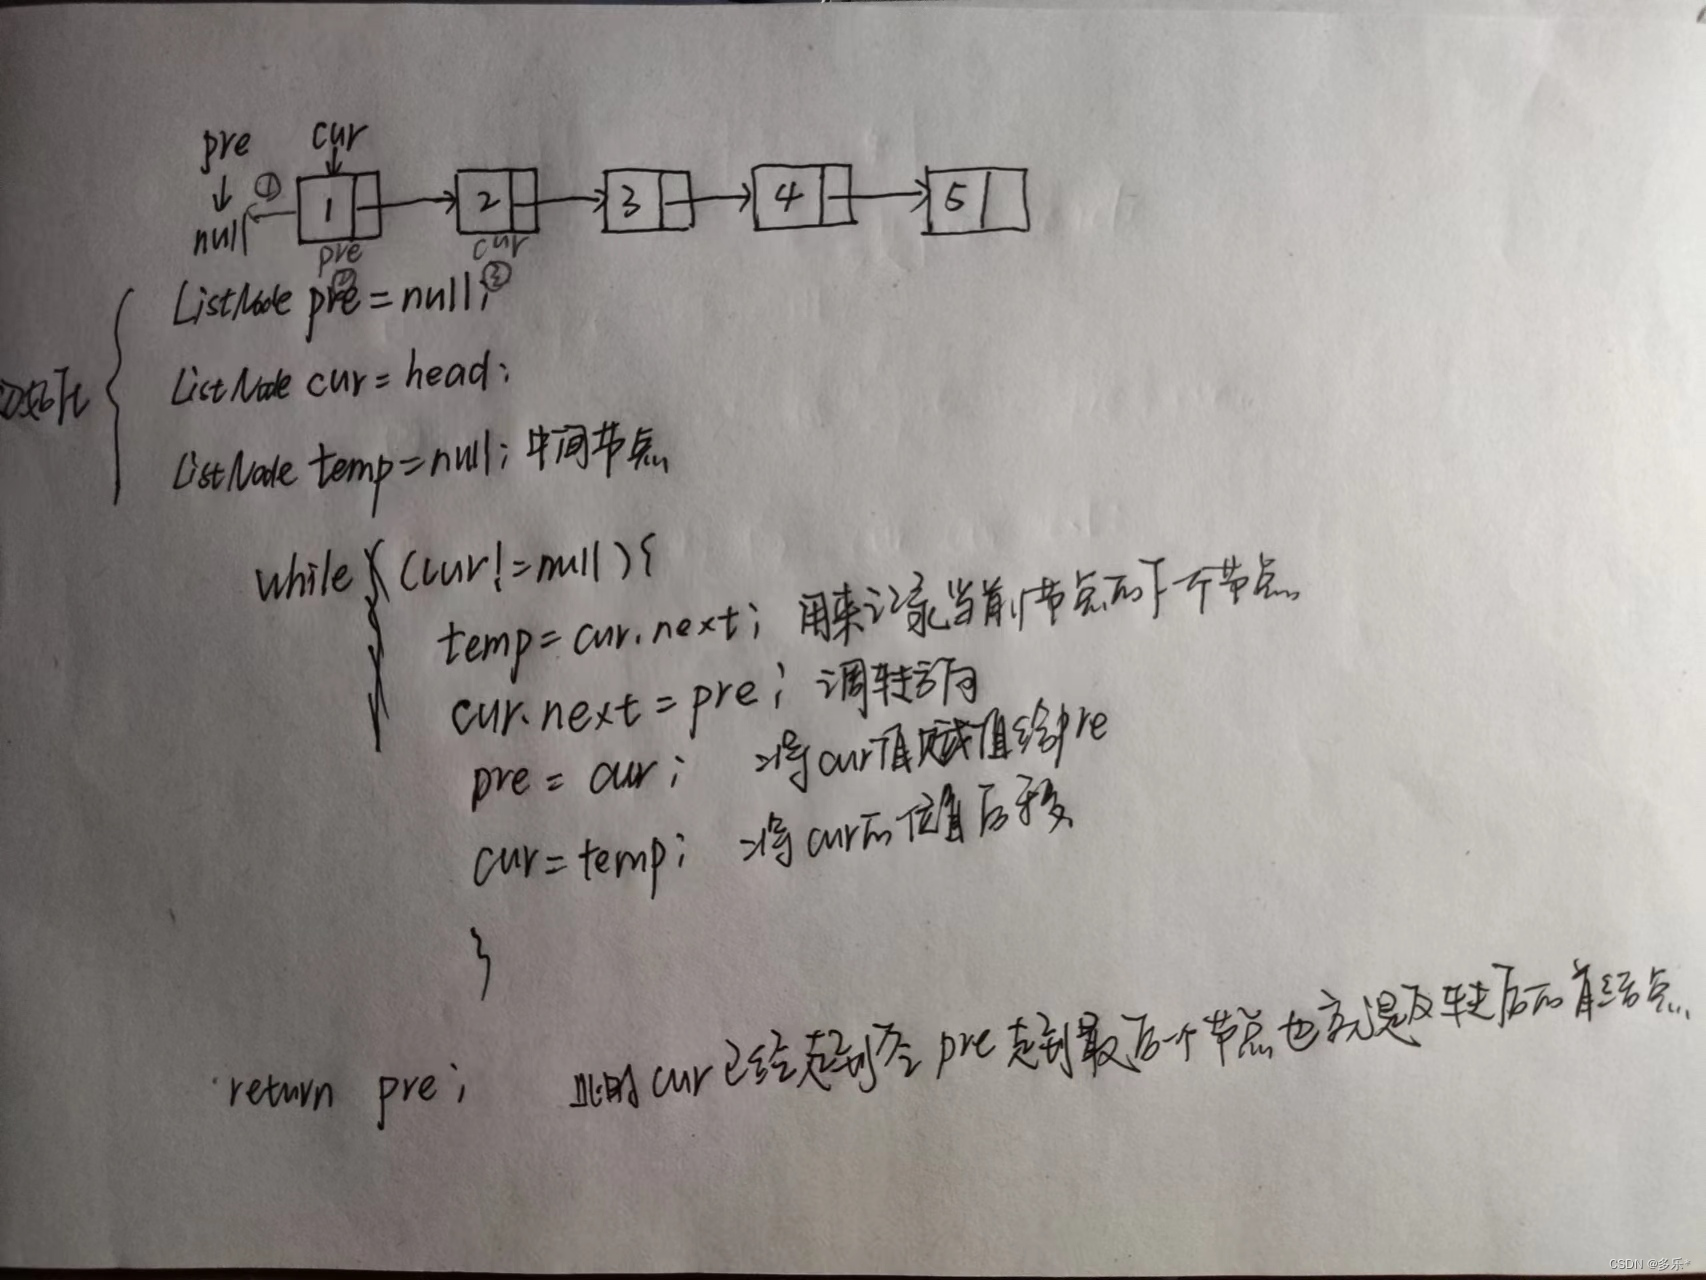 pre cur
①
null 1 2 3 4 5
pre cur
② ③
ListNode pre = null;
初始化
ListNode cur = head;
ListNode temp = null; 中间节点
while (cur != null) {
temp = cur.next; 用来记录当前节点的下一个节点
cur.next = pre; 调转方向
pre = cur; 将cur值赋值给pre
cur = temp; 将cur的位置后移
}
return pre; 此时cur已经走到 pre走到最后一个节点也就是反转后的首结点
CSDN @多乐*